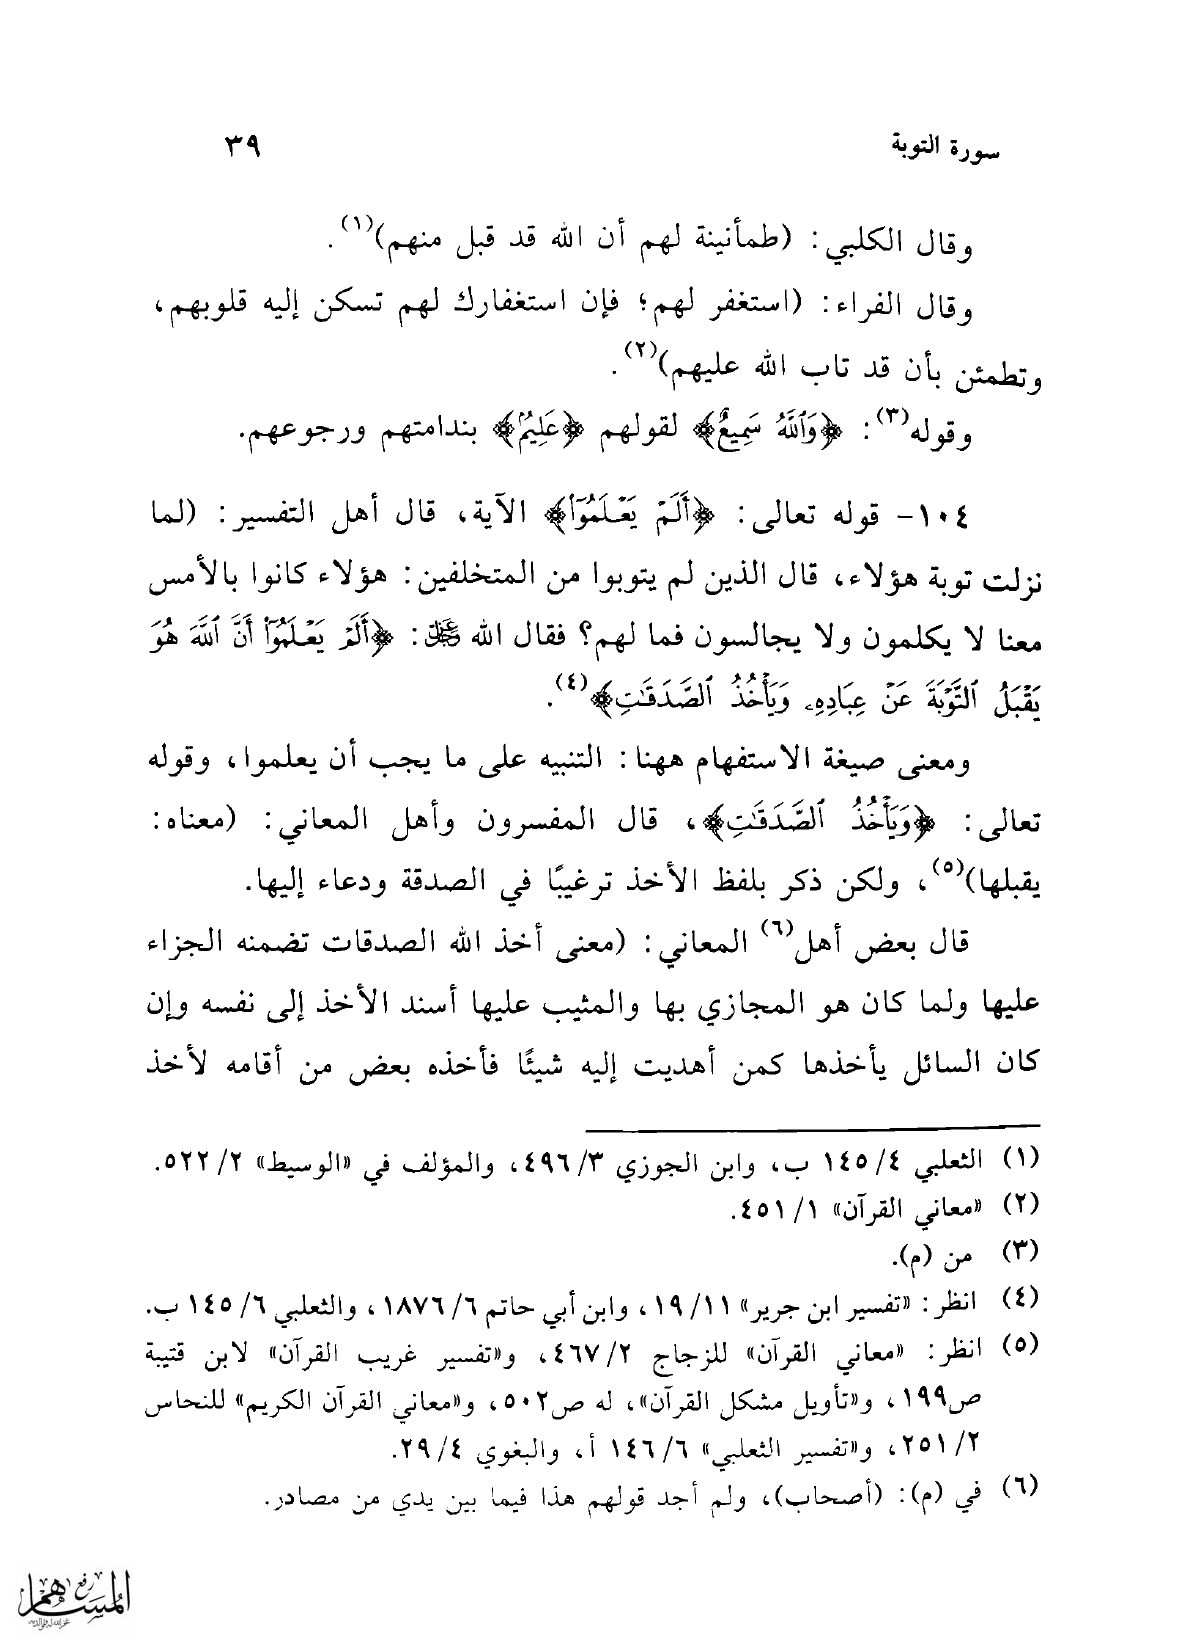 سورة التوبة ٣٩
وقال الكلبي: (طمأنينة لهم أن الله قد قبل منهم)(١).
وقال الفراء: (استغفر لهم؛ فإن استغفارك لهم تسكن إليه قلوبهم،
وتطمئن بأن قد تاب الله عليهم)(٢).
وقوله(٣): ﴿وَٱللَّهُ سَمِيعٌ﴾ لقولهم ﴿عَلِيمٌ﴾ بندامتهم ورجوعهم.
١٠٤- قوله تعالى: ﴿أَلَمْ يَعْلَمُوٓا۟﴾ الآية، قال أهل التفسير: (لما
نزلت توبة هؤلاء، قال الذين لم يتوبوا من المتخلفين: هؤلاء كانوا بالأمس
معنا لا يكلمون ولا يجالسون فما لهم؟ فقال الله عز وجل: ﴿أَلَمْ يَعْلَمُوٓا۟ أَنَّ ٱللَّهَ هُوَ
يَقْبَلُ ٱلتَّوْبَةَ عَنْ عِبَادِهِۦ وَيَأْخُذُ ٱلصَّدَقَٰتِ﴾(٤).
ومعنى صيغة الاستفهام ههنا: التنبيه على ما يجب أن يعلموا، وقوله
تعالى: ﴿وَيَأْخُذُ ٱلصَّدَقَٰتِ﴾، قال المفسرون وأهل المعاني: (معناه:
يقبلها)(٥)، ولكن ذكر بلفظ الأخذ ترغيبًا في الصدقة ودعاء إليها.
قال بعض أهل(٦) المعاني: (معنى أخذ الله الصدقات تضمنه الجزاء
عليها ولما كان هو المجازي بها والمثيب عليها أسند الأخذ إلى نفسه وإن
كان السائل يأخذها كمن أهديت إليه شيئًا فأخذه بعض من أقامه لأخذ
(١) الثعلبي ٤/ ١٤٥ ب، وابن الجوزي ٣/ ٤٩٦، والمؤلف في «الوسيط» ٢/ ٥٢٢.
(٢) «معاني القرآن» ١/ ٤٥١.
(٣) من (م).
(٤) انظر: «تفسير ابن جرير» ١١/ ١٩، وابن أبي حاتم ٦/ ١٨٧٦، والثعلبي ٦/ ١٤٥ ب.
(٥) انظر: «معاني القرآن» للزجاج ٢/ ٤٦٧، و«تفسير غريب القرآن» لابن قتيبة
ص١٩٩، و«تأويل مشكل القرآن»، له ص٥٠٢، و«معاني القرآن الكريم» للنحاس
٢/ ٢٥١، و«تفسير الثعلبي» ٦/ ١٤٦ أ، والبغوي ٤/ ٢٩.
(٦) في (م): (أصحاب)، ولم أجد قولهم هذا فيما بين يدي من مصادر.
رفع
المساهم